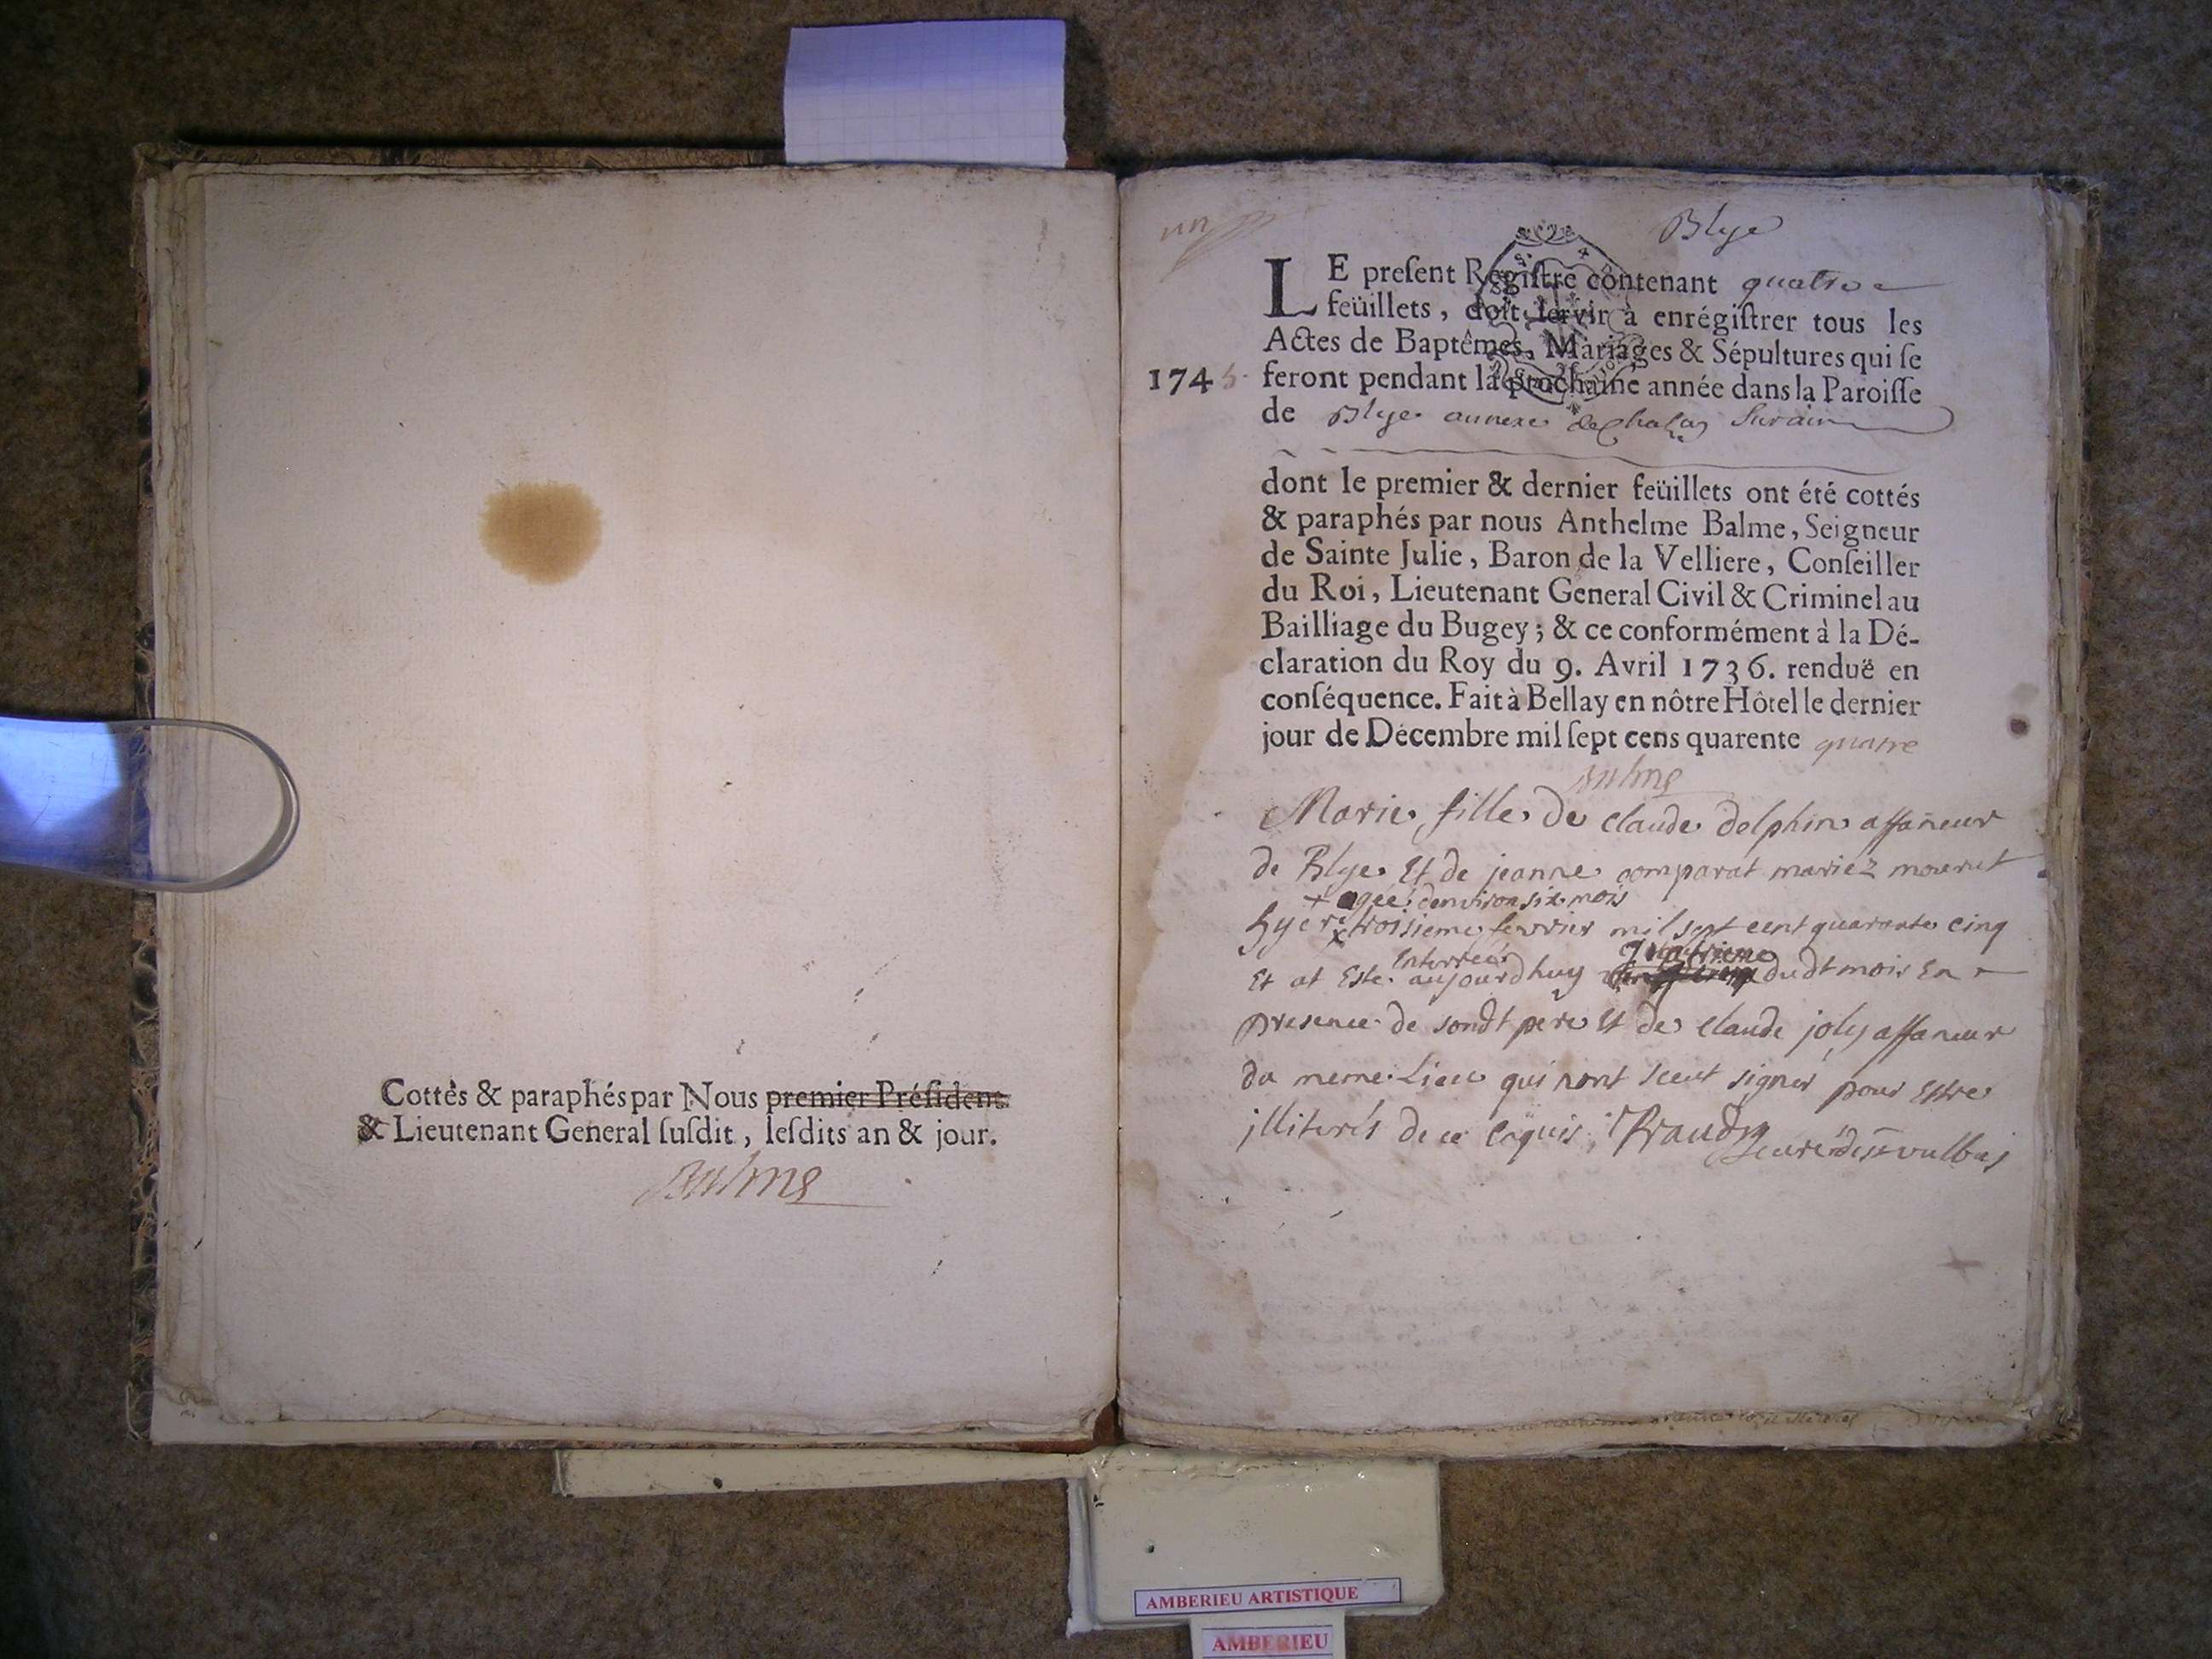 Cottés & paraphés par Nous premier Président
& Lieutenant General ſuſdit, leſdits an & jour.
Balme
un
Blye
LE preſent Regiſtre contenant quatre
feüillets, doit ſervir à enrégiſtrer tous les
Actes de Baptêmes, Mariages & Sépultures qui ſe
1745. feront pendant la prochaine année dans la Paroiſſe
de Blye annexe de
dont le premier & dernier feüillets ont été cottés
& paraphés par nous Anthelme Balme, Seigneur
de Sainte Julie, Baron de la Velliere, Conſeiller
du Roi, Lieutenant General Civil & Criminel au
Bailliage du Bugey; & ce conformément à la Dé-
claration du Roy du 9. Avril 1736. renduë en
conſéquence. Fait à Bellay en nôtre Hôtel le dernier
jour de Décembre mil ſept cens quarente quatre
Balme
Marie fille de claude delphin affaneur
de Blye Et de jeanne comparat mariez mourut
+ agée denviron six mois
hyer x troisieme fevrier mil sept cent quarante cinq
Enterrée quatrieme
Et at Este aujourdhuy dudt mois En
presence de sondt pere Et de claude joly affaneur
du meme Lieu qui nont sceut signer pour Estre
illiterés de ce Enquis Praudy
curé de st vulbas
AMBERIEU ARTISTIQUE
AMBERIEU